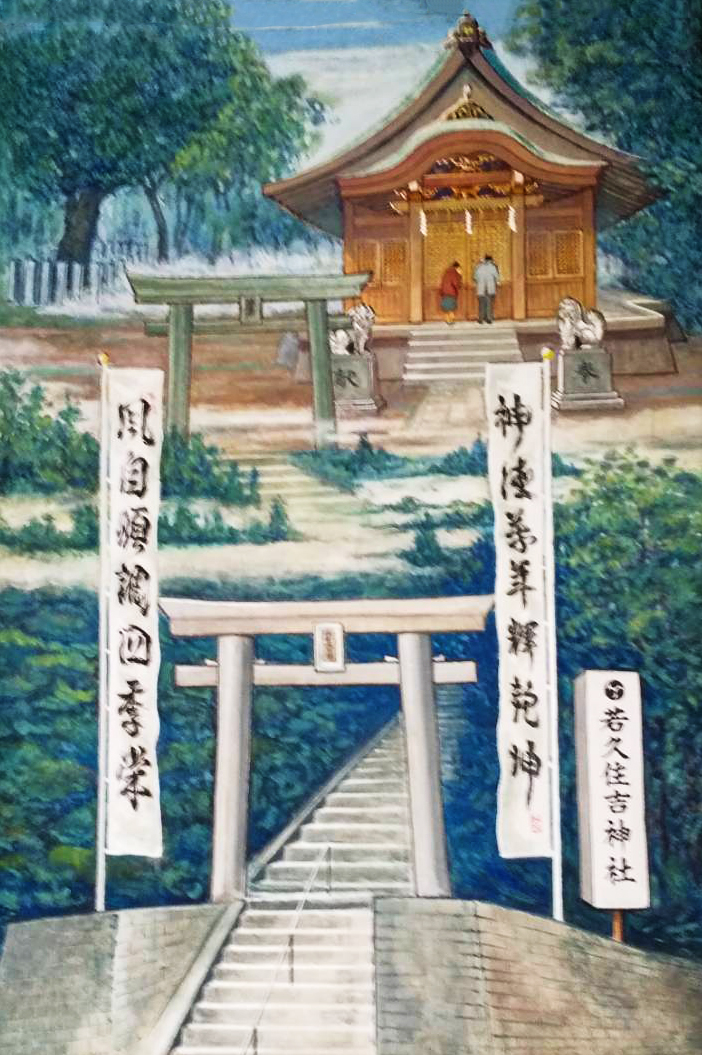 奉
神徳萬年輝乾坤
風自順調四季栄
若久住吉神社